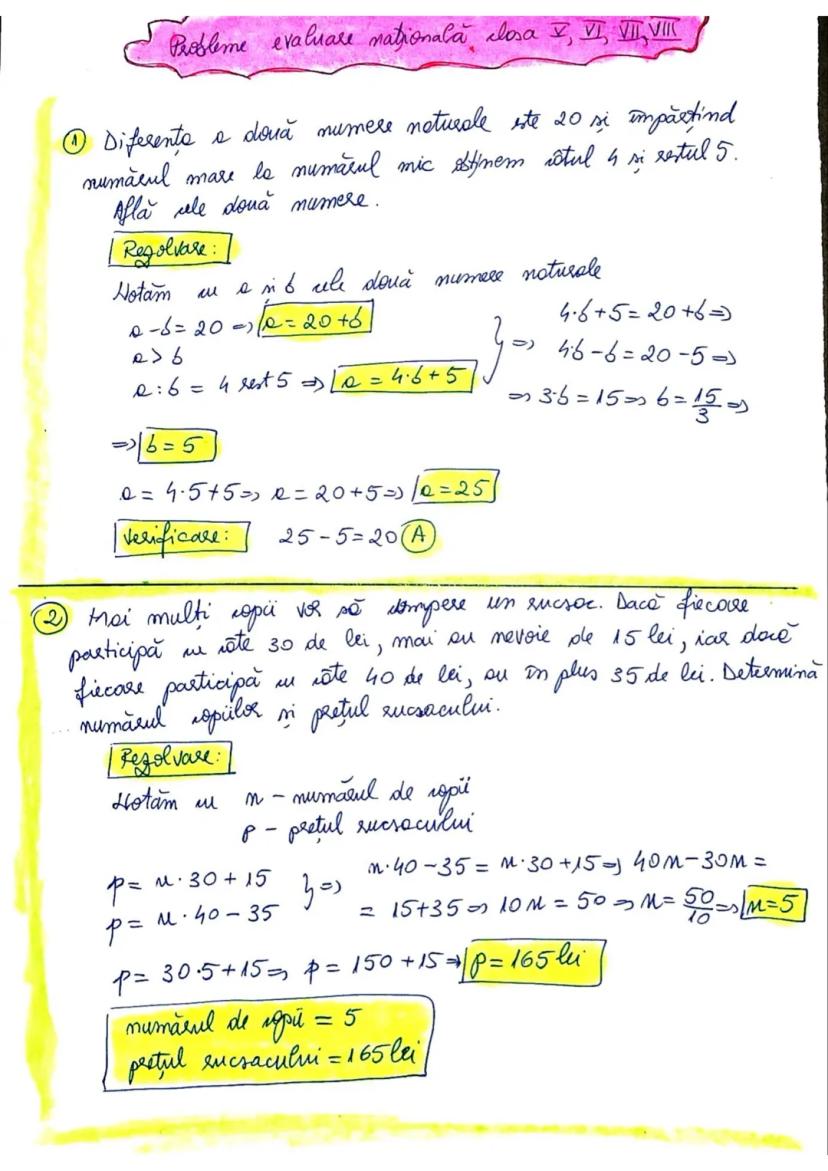 Probleme evaluare națională, clasa V, VI, VII, VIII
① Diferența a două numere naturale este 20 și împărțind
numărul mare la numărul mic obținem câtul 4 și restul 5.
Află cele două numere.
Rezolvare:
Notăm cu a și b cele două numere naturale
a-b=20 => a=20+b
a>b
a:b = 4 rest 5 => a = 4·b+5
} =>
4·b+5=20+b =>
4b-b=20-5 =>
=> 3·b=15 => b=15/3 =>
=> b=5
a= 4·5+5 => a=20+5 => a=25
Verificare: 25-5=20 Ⓐ
② Mai mulți copii vor să cumpere un rucsac. Dacă fiecare
participă cu câte 30 de lei, mai au nevoie de 15 lei, iar dacă
fiecare participă cu câte 40 de lei, au în plus 35 de lei. Determină
numărul copiilor și prețul rucsacului.
Rezolvare:
Notăm cu n - numărul de copii
p - prețul rucsacului
p= n·30+15
p= n·40-35
} =>
n·40-35=n·30+15 => 40n-30n=
= 15+35 => 10n=50 => n=50/10 => n=5
p= 30·5+15 => p= 150+15 => p=165 lei
numărul de copii = 5
prețul rucsacului = 165 lei